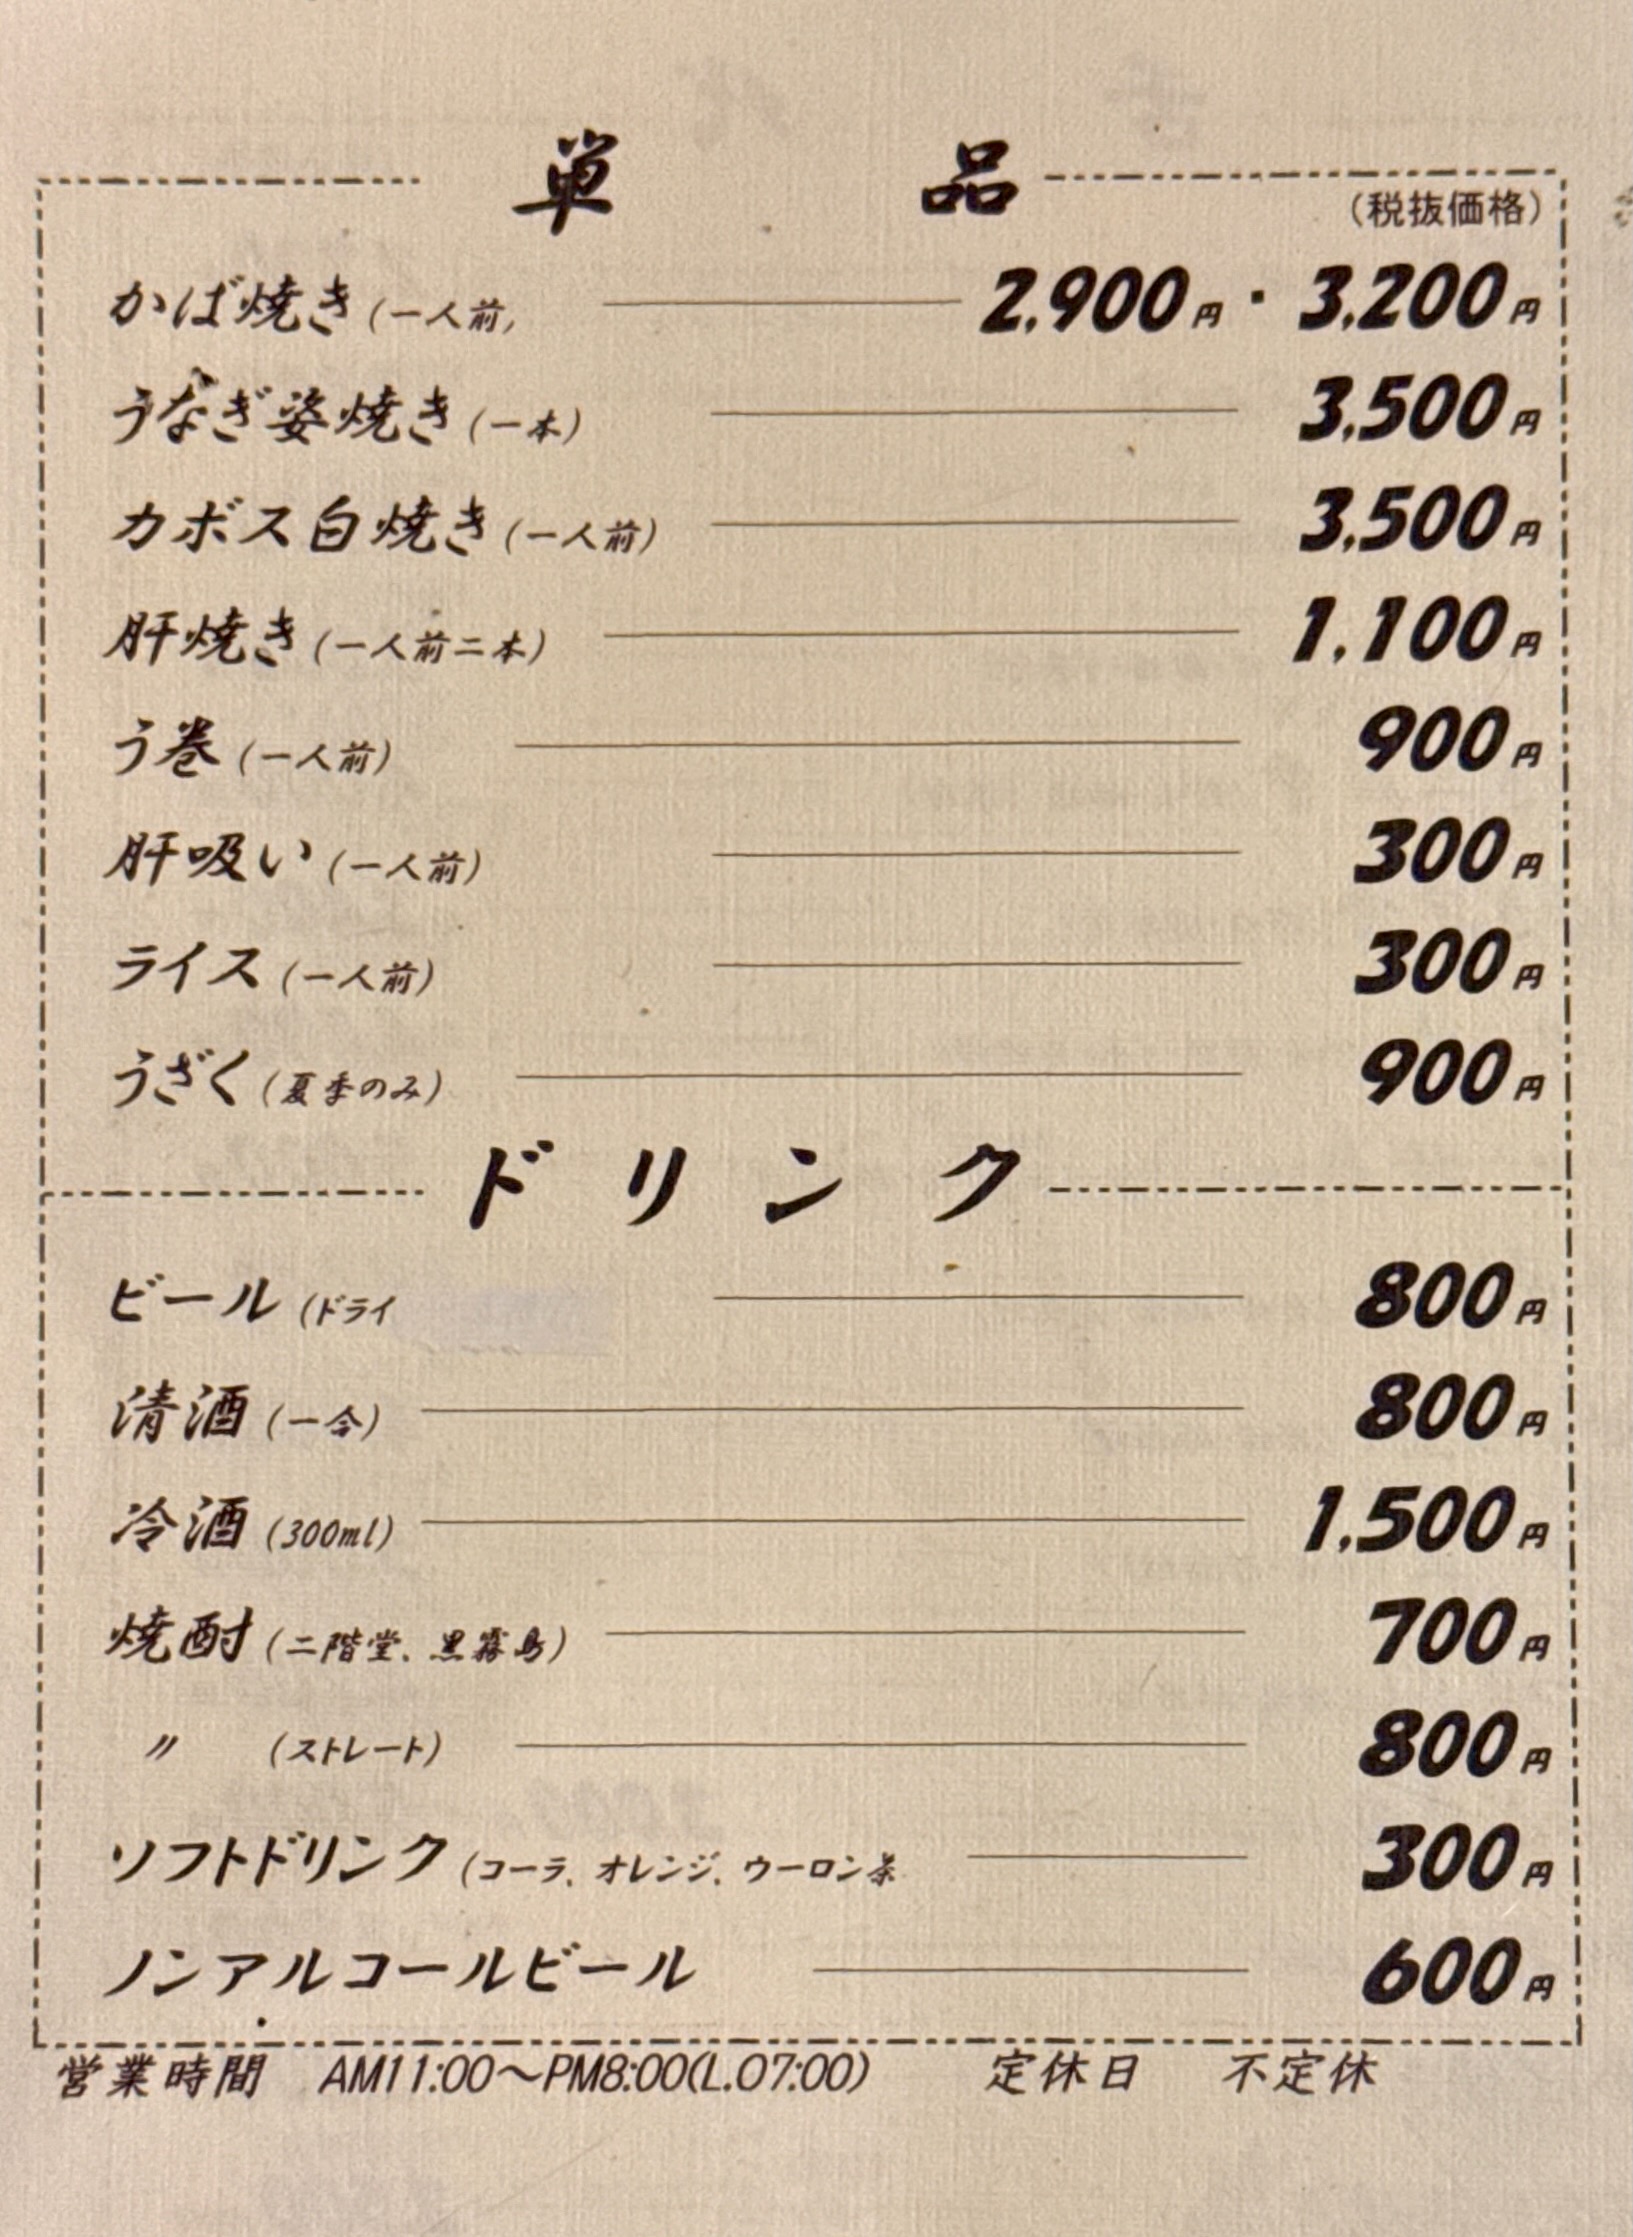 単品
(税抜価格)
かば焼き (一人前, 2,900円・3,200円
うなぎ姿焼き (一本) 3,500円
カボス白焼き (一人前) 3,500円
肝焼き (一人前二本) 1,100円
う巻 (一人前) 900円
肝吸い (一人前) 300円
ライス (一人前) 300円
うざく (夏季のみ) 900円
ドリンク
ビール (ドライ 800円
清酒 (一合) 800円
冷酒 (300ml) 1,500円
焼酎 (二階堂、黒霧島) 700円
〃 (ストレート) 800円
ソフトドリンク (コーラ、オレンジ、ウーロン茶 300円
ノンアルコールビール 600円
営業時間 AM11:00～PM8:00(L.O7:00) 定休日 不定休